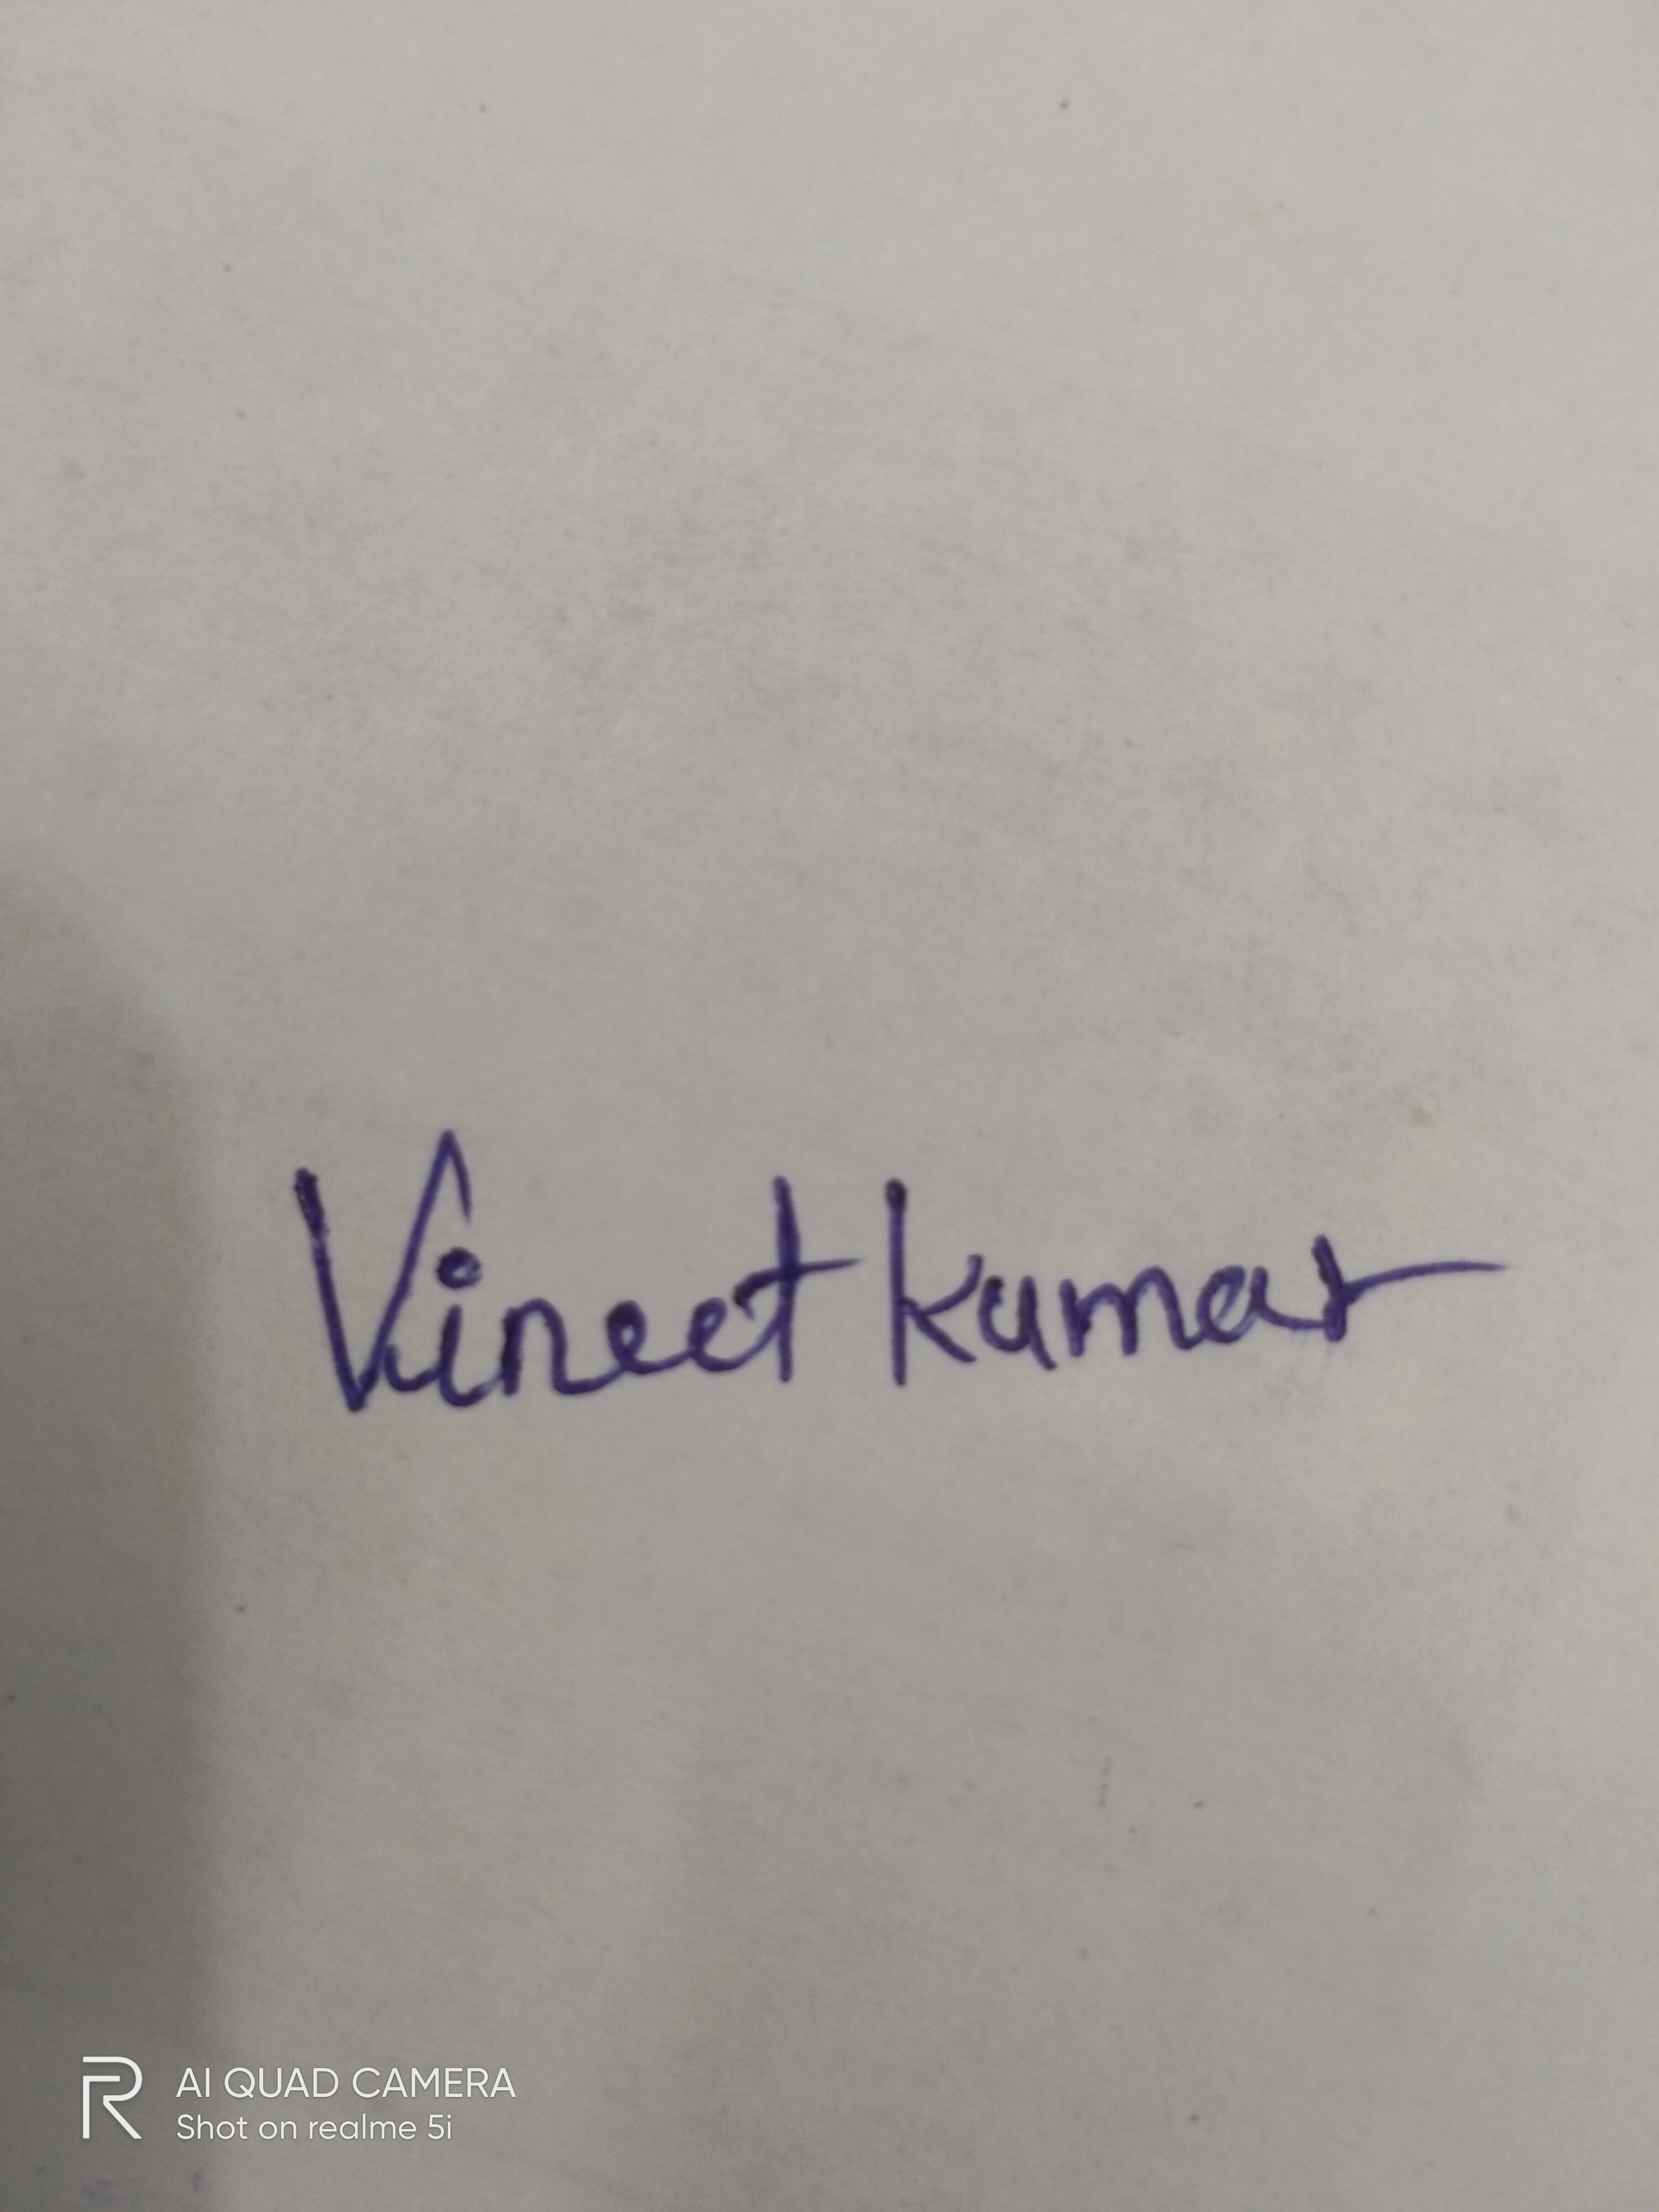 Vineet kumar
R AI QUAD CAMERA
Shot on realme 5i